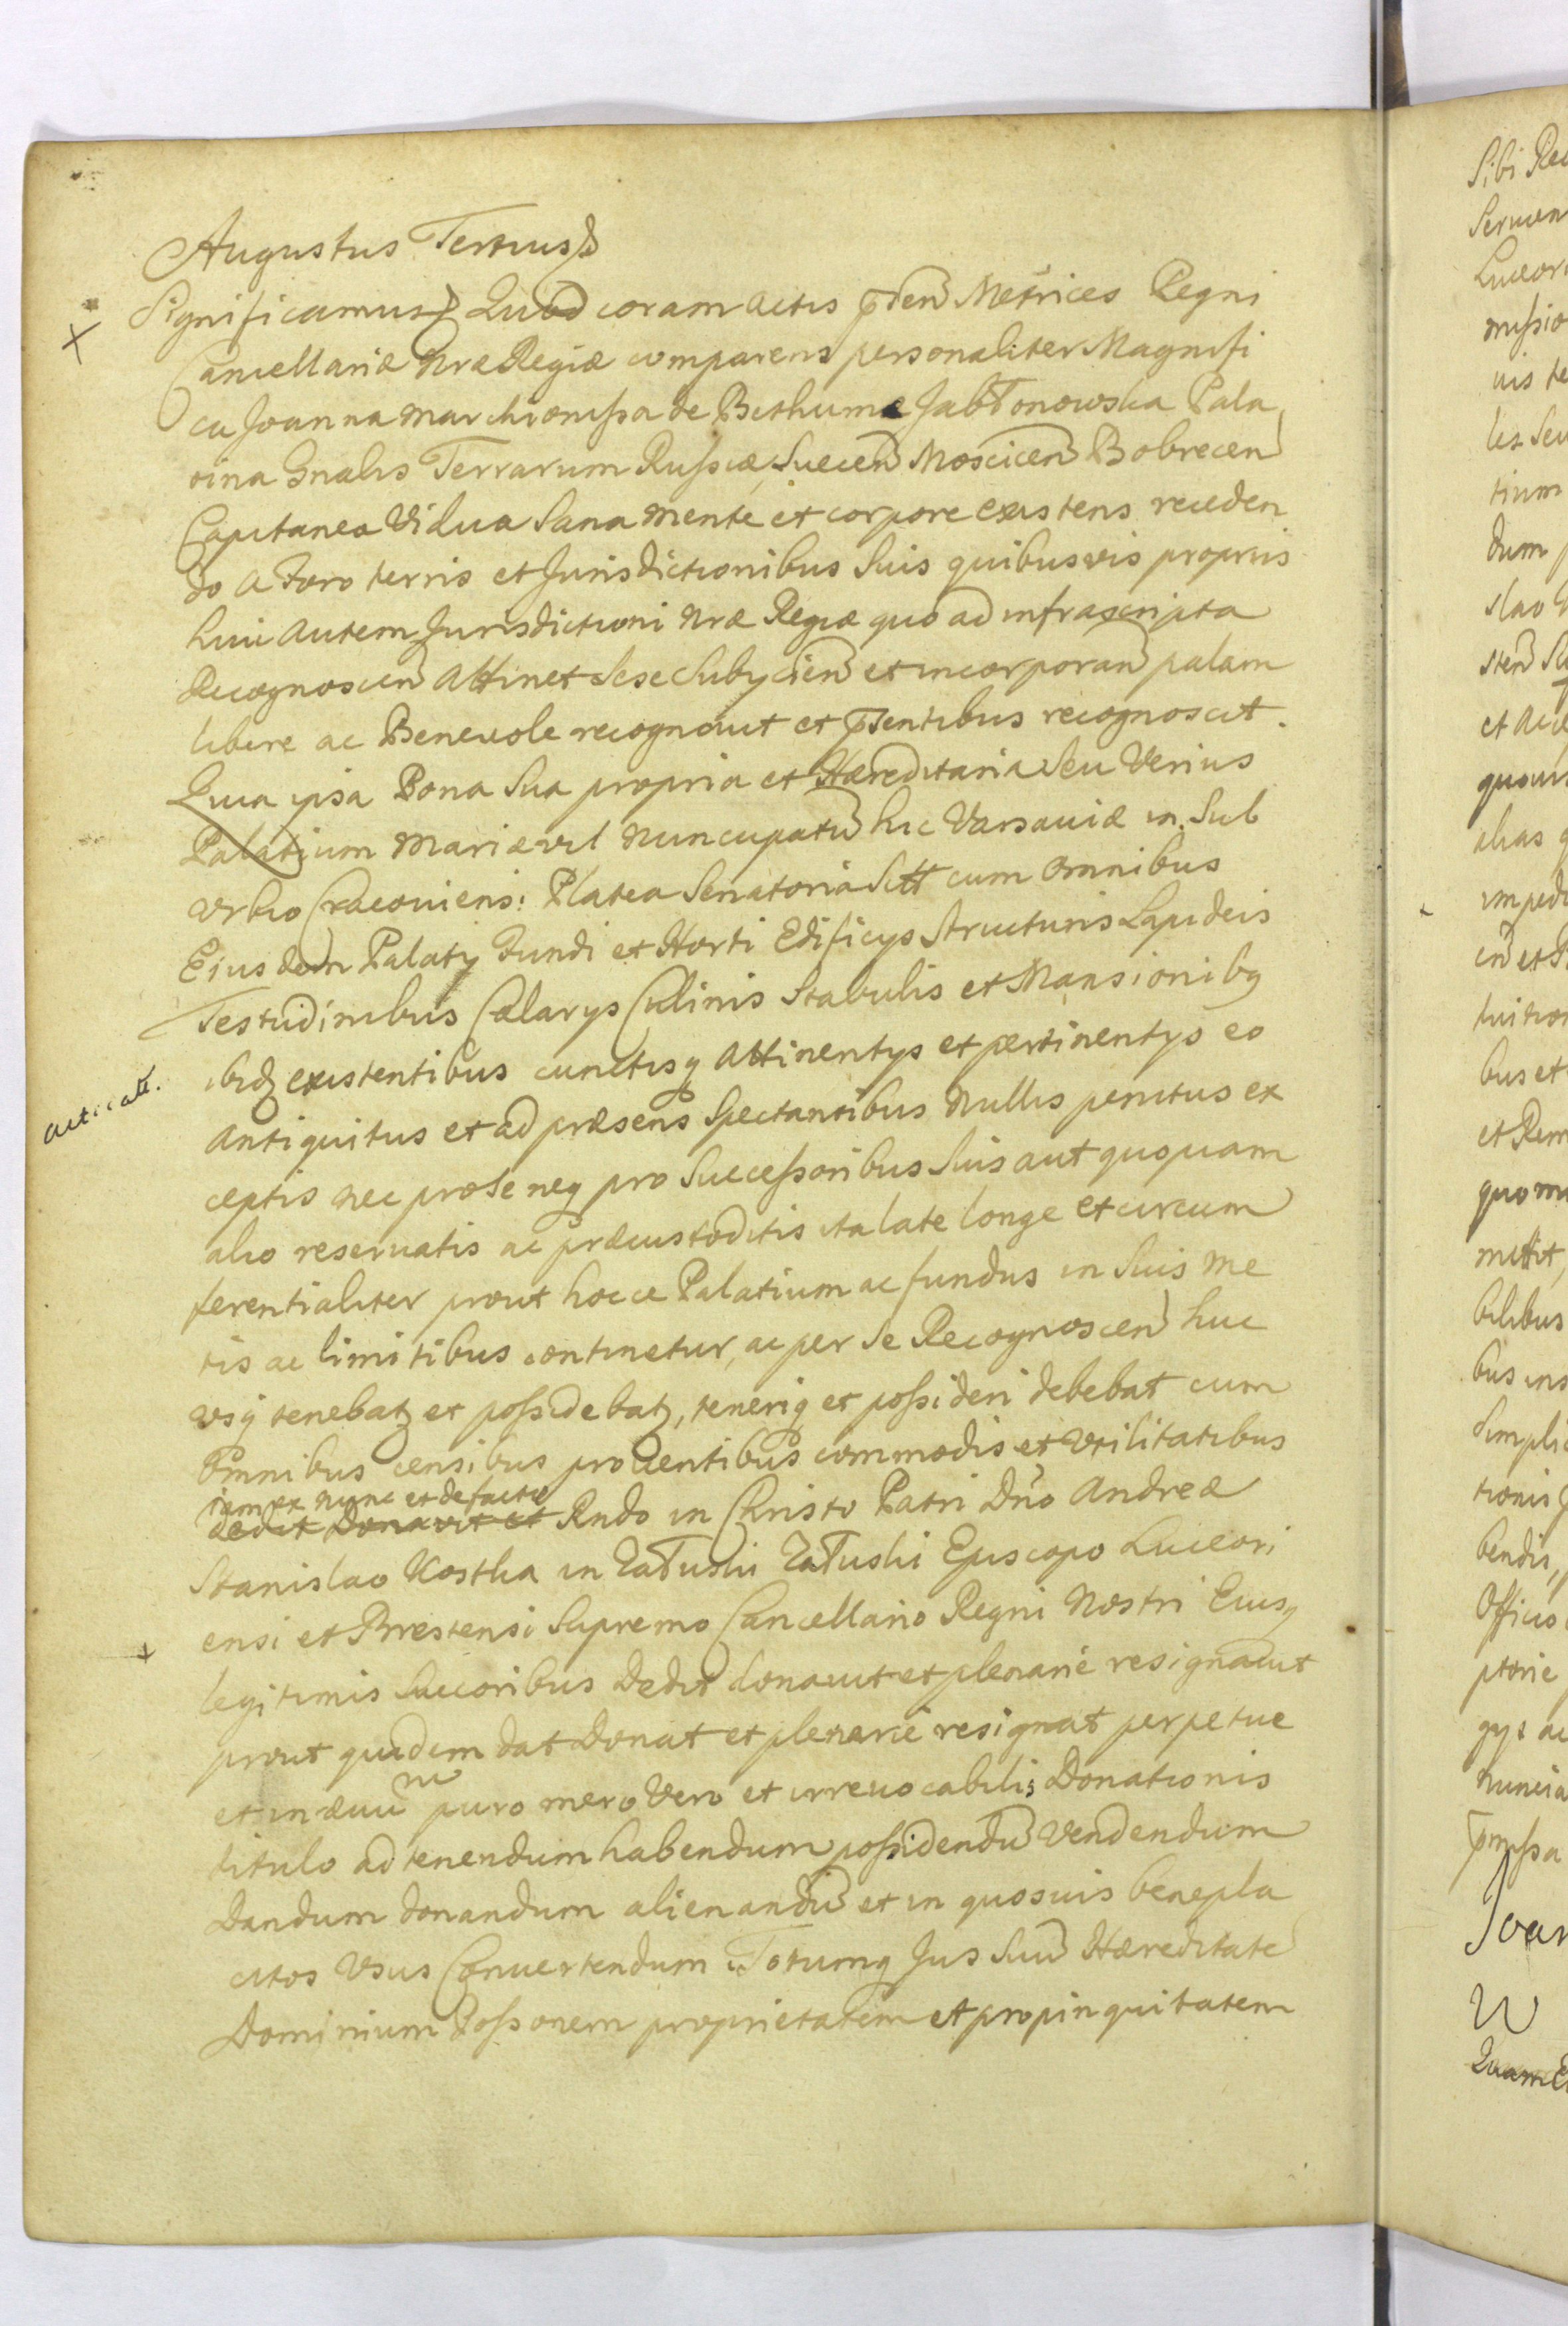 Augustus Tertius
Significamus Quod coram Actis pnten Metrices Regni
Cancellariæ Nræ Regiæ comparens personaliter Magnifi
ca Joanna Marchionissa de Bethume Jabłonowska Pala
tina Gnalis Terrarum Russiæ, Suecen Moscicen Bobrecen
Capitanea Vidua Sana mente et corpore existens receden
do a Foro terris et Jurisdictionibus Suis quibusvis propriis
huic autem Jurisdictioni Nræ Regiæ quo ad infrascripta
Recognoscen Attinet Sese Subycien et incorporan palam
libere ac Beneuole recognouit et pntentibus recognoscit.
Quia ipsa Bona Sua propria et Hæreditaria Seu Verius
Palatium Mariævil Nuncupatu hic Varsauiæ in Sub
vrbio Cracouiens: Platea Senatoria Sitt cum Omnibus
Eiusdem Palaty Fundi et Horti Edificys Structuris Lapideis
Testudinibus Cælarys Culinis Stabulis et Mansionibq
ibidq existentibus cunctisq Attinentys et pertinentys eo
Antiquitus et ad præsens Spectantibus Nullis penitus ex
acticatt.
ceptis nec pro Se neq pro Successoribus Suis aut quoquam
alio reseruatis ac præcustoditis ita late longe et circum
ferentialiter prout hocce Palatium ac fundus in Suis me
tis ac limitibus continetur, ac per Se Recognoscen huc
vsq tenebatq et possidebatq, teneriq et possideri debebat cum
Omnibus censibus prouentibus commodis et Vtilitatibus
iam ex nunc et de facto
dedit Donavit et Rndo in Christo Patri Dno Andreæ
Stanislao Kostka in Załuski Załuski Episcopo Luceori
ensi et Brestensi Supremo Cancellario Regni Nostri Eiusq
legitimis Succoribus Dedit donauit et plenarie resignauit
prout quidem dat Donat et plenarie resignat perpetue
et in æuu puro mero Vero et irreuocabilis Donationis
titulo ad tenendum habendum possidendu Vendendum
Dandum donandum alienandu et in quosuis benepla
citos Vsus Conuertendum. Totumq Jus Suu Hæreditate
Dominium Possonem proprietatem et propinquitatem